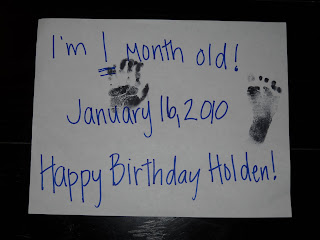 I'm 1 Month old!
January 16, 2010
Happy Birthday Holden!